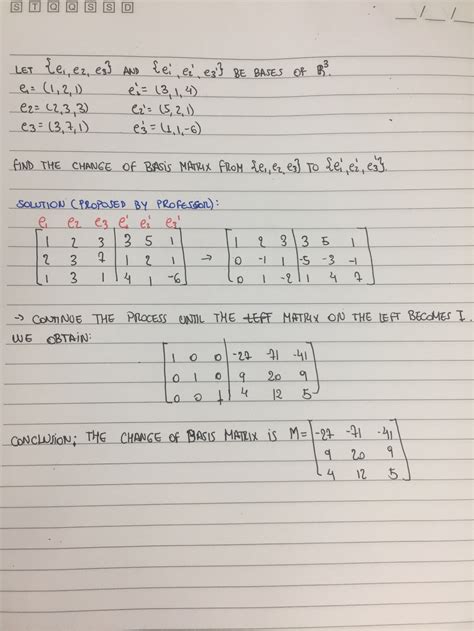 S T Q Q S S D
__/__/__
LET {e1, e2, e3} AND {e1', e2', e3'} BE BASES OF R³.
e1 = (1,2,1) e1' = (3,1,4)
e2 = (2,3,3) e2' = (5,2,1)
e3 = (3,7,1) e3' = (1,1,-6)
FIND THE CHANGE OF BASIS MATRIX FROM {e1, e2, e3} TO {e1', e2', e3'}.
SOLUTION (PROPOSED BY PROFESSOR):
e1 e2 e3 e1' e2' e3'
[1 2 3 | 3 5 1] → [1 2 3 | 3 5 1]
[2 3 7 | 1 2 1] [0 -1 1 | -5 -3 -1]
[1 3 1 | 4 1 -6] [0 1 -2 | 1 4 7]
→ CONTINUE THE PROCESS UNTIL THE LEFT MATRIX ON THE LEFT BECOMES I.
WE OBTAIN:
[1 0 0 | -27 71 -41]
[0 1 0 | 9 20 9]
[0 0 1 | 4 12 5]
CONCLUSION; THE CHANGE OF BASIS MATRIX IS M= [-27 -71 -41]
[9 20 9]
[4 12 5]